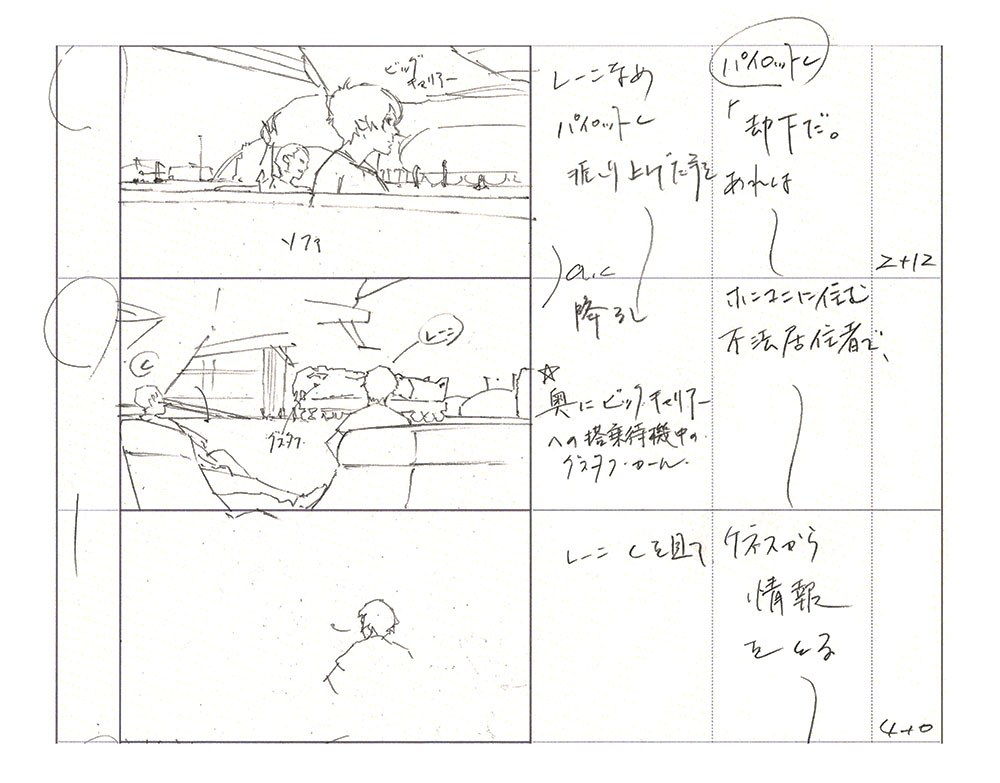 ビッグ
キャリアー
ソファ
レーンなめ
パイロットC
振り上げた手を
パイロットC
「却下だ。
あれは
2+12
C
レーン
グスタフ
a.c
降ろし
☆
奥にビッグキャリアー
への搭乗待機中の
グスタフ・カール
ホンコンに住む
不法居住者で、
レーン Cを見て
ケネスから
情報
をとる
4+0